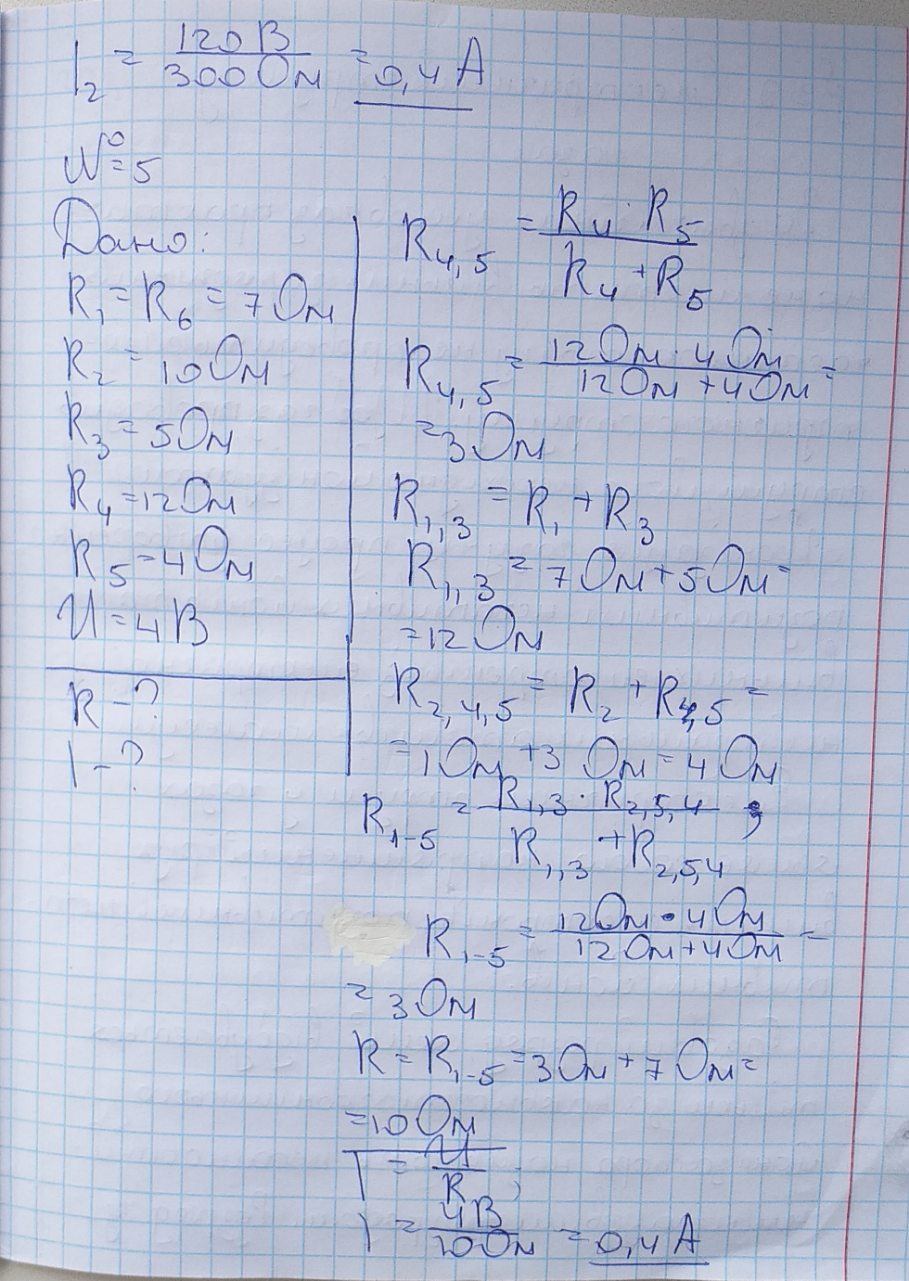 I₂ = 120В / 300Ом = 0,4А
№ = 5
Дано:
R₁ = R₆ = 7Ом
R₂ = 10Ом
R₃ = 5Ом
R₄ = 12Ом
R₅ = 4Ом
U = 4В
R - ?
I - ?
R₄,₅ = R₄ · R₅ / R₄ + R₅
R₄,₅ = 12Ом · 4Ом / 12Ом + 4Ом =
= 3Ом
R₁,₃ = R₁ + R₃
R₁,₃ = 7Ом + 5Ом =
= 12Ом
R₂,₄,₅ = R₂ + R₄,₅ =
= 1Ом + 3Ом = 4Ом
R₁₋₅ = R₁,₃ · R₂,₅,₄ / R₁,₃ + R₂,₅,₄ ;
R₁₋₅ = 12Ом · 4Ом / 12Ом + 4Ом =
= 3Ом
R = R₁₋₅ = 3Ом + 7Ом =
= 10Ом
I = U / R ;
I = 4В / 10Ом = 0,4А